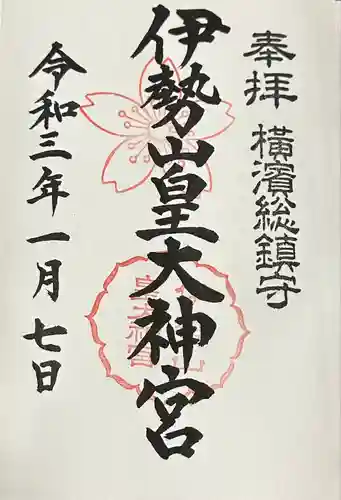 奉拝 横濱総鎮守
伊勢山皇大神宮
令和三年一月七日